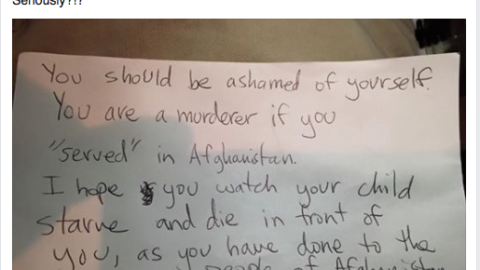 Seriously???
You should be ashamed of yourself.
You are a murderer if you
"served" in Afghanistan.
I hope you watch your child
starve and die in front of
you, as you have done to the
people of Afghanistan